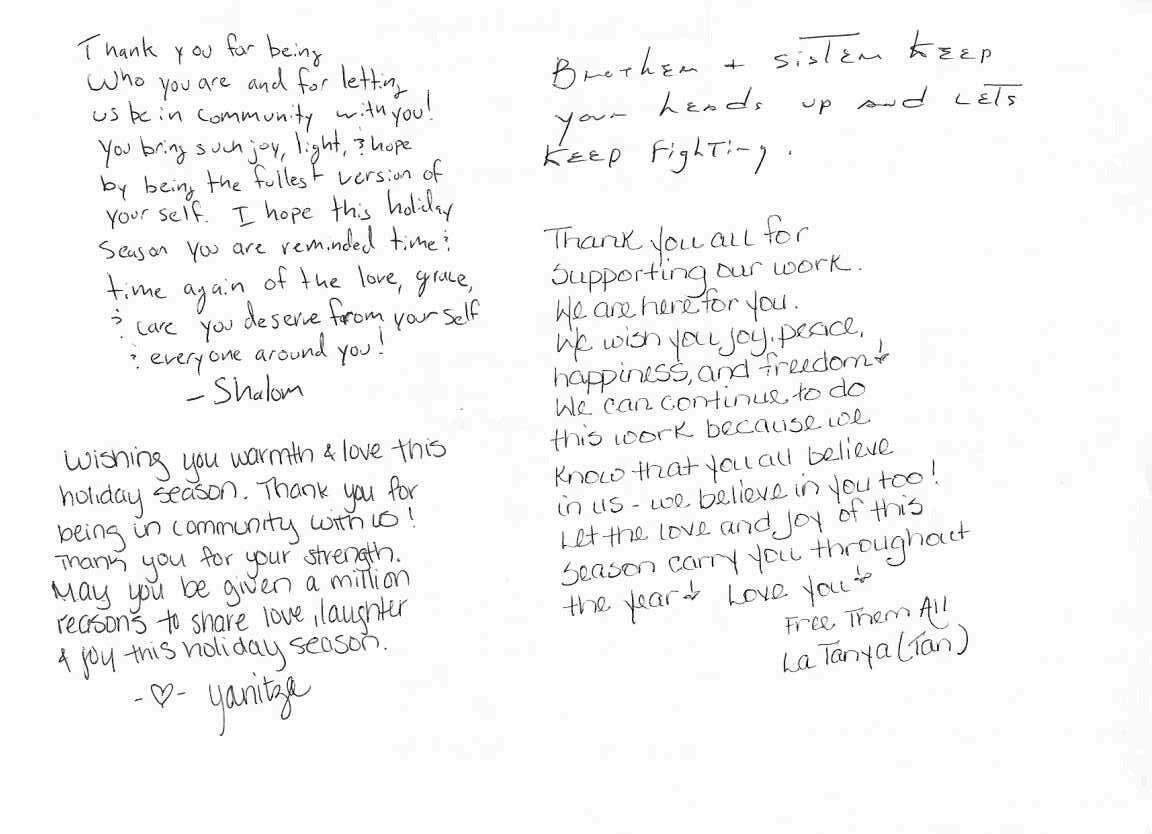 Thank you for being
Who you are and for letting
us be in community with you!
You bring such joy, light, & hope
by being the fullest version of
your self. I hope this holiday
season you are reminded time &
time again of the love, grace,
& care you deserve from your self
& everyone around you!
- Shalom
Wishing you warmth & love this
holiday season. Thank you for
being in community with us!
Thank you for your strength.
May you be given a million
reasons to share love, laughter
& joy this holiday season.
-♡- Yanitza
Brother + sister KEEP
your heads up and LETS
KEEP FighTing.
Thank you all for
supporting our work.
We are here for you.
We wish you joy, peace,
happiness, and freedom!
We can continue to do
this work because we
know that you all believe
in us - we believe in you too!
Let the love and joy of this
season carry you throughout
the year! Love you!
Free Them All
La Tanya (Tan)